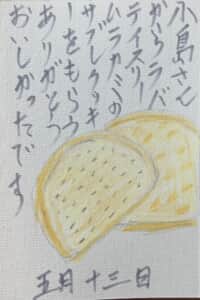 小島さん
からラバ
ティスリー
ムラカミの
サブレクッキ
ーをもらう
ありがとう
おいしかったです
五月十三日